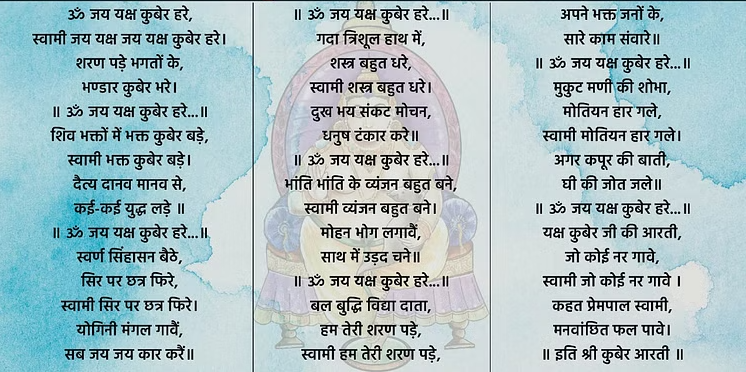 ॐ जय यक्ष कुबेर हरे,
स्वामी जय यक्ष जय यक्ष कुबेर हरे।
शरण पड़े भगतों के,
भण्डार कुबेर भरे।
॥ ॐ जय यक्ष कुबेर हरे...॥
शिव भक्तों में भक्त कुबेर बड़े,
स्वामी भक्त कुबेर बड़े।
दैत्य दानव मानव से,
कई-कई युद्ध लड़े ॥
॥ ॐ जय यक्ष कुबेर हरे...॥
स्वर्ण सिंहासन बैठे,
सिर पर छत्र फिरे,
स्वामी सिर पर छत्र फिरे।
योगिनी मंगल गावैं,
सब जय जय कार करैं॥
॥ ॐ जय यक्ष कुबेर हरे...॥
गदा त्रिशूल हाथ में,
शस्त्र बहुत धरे,
स्वामी शस्त्र बहुत धरे।
दुख भय संकट मोचन,
धनुष टंकार करे॥
॥ ॐ जय यक्ष कुबेर हरे...॥
भांति भांति के व्यंजन बहुत बने,
स्वामी व्यंजन बहुत बने।
मोहन भोग लगावैं,
साथ में उड़द चने॥
॥ ॐ जय यक्ष कुबेर हरे...॥
बल बुद्धि विद्या दाता,
हम तेरी शरण पड़े,
स्वामी हम तेरी शरण पड़े,
अपने भक्त जनों के,
सारे काम संवारे॥
॥ ॐ जय यक्ष कुबेर हरे...॥
मुकुट मणी की शोभा,
मोतियन हार गले,
स्वामी मोतियन हार गले।
अगर कपूर की बाती,
घी की जोत जले॥
॥ ॐ जय यक्ष कुबेर हरे...॥
यक्ष कुबेर जी की आरती,
जो कोई नर गावे,
स्वामी जो कोई नर गावे ।
कहत प्रेमपाल स्वामी,
मनवांछित फल पावे।
॥ इति श्री कुबेर आरती ॥